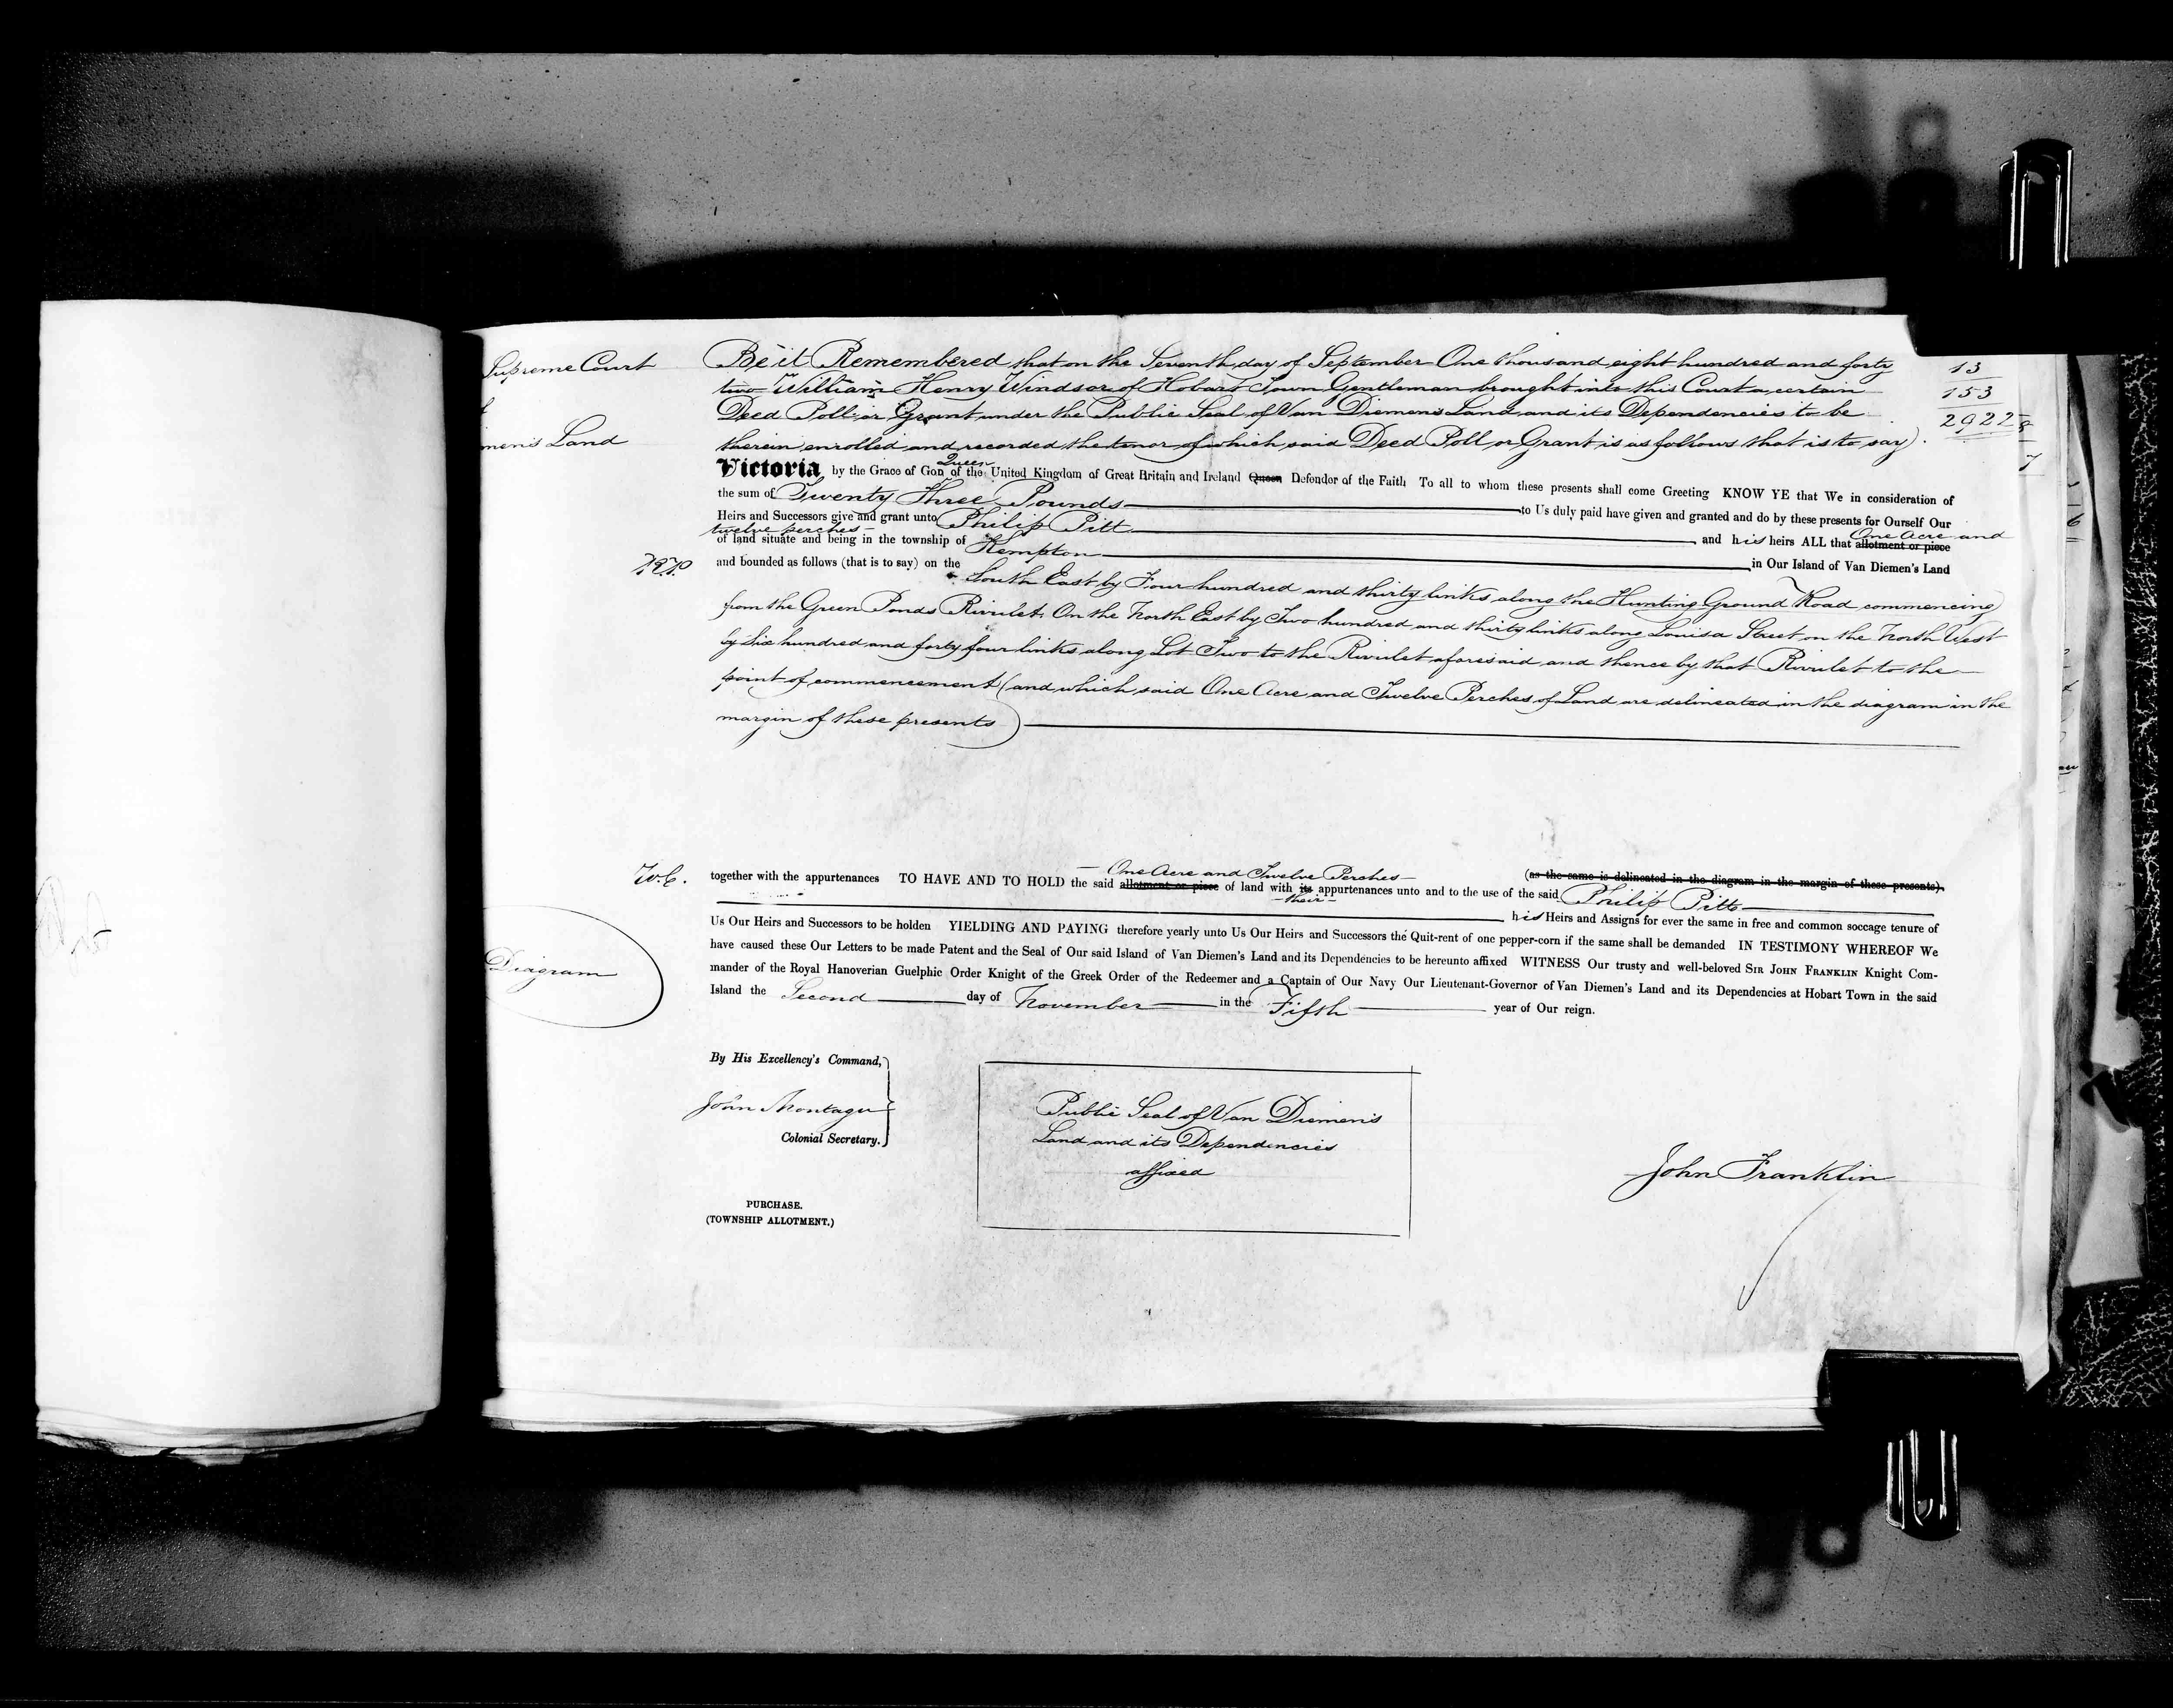 Supreme Court
men's Land
Be it Remembered that on the Seventh day of September One thousand eight hundred and forty
two William Henry Windsor of Hobart Town Gentleman brought into this Court a certain
Deed Poll or Grant under the Public Seal of Van Diemen's Land and its Dependencies to be
therein enrolled and recorded the tenor of which said Deed Poll or Grant is as follows that is to say).
13
153
2922
7
Queen
Victoria by the Grace of God of the United Kingdom of Great Britain and Ireland Queen Defender of the Faith To all to whom these presents shall come Greeting KNOW YE that We in consideration of
the sum of Twenty Three Pounds to Us duly paid have given and granted and do by these presents for Ourself Our
Heirs and Successors give and grant unto Philip Pitt and his heirs ALL that allotment or piece
One Acre and
twelve perches
of land situate and being in the township of Kempton in Our Island of Van Diemen's Land
and bounded as follows (that is to say) on the South East by Four hundred and thirty links along the Hunting Ground Road commencing
from the Green Ponds Rivulet. On the North East by Two hundred and thirty links along Louisa Street on the North West
by Six hundred and forty four links along Lot Two to the Rivulet aforesaid and thence by that Rivulet to the
point of commencement (and which said One Acre and Twelve Perches of Land are delineated in the diagram in the
margin of these presents)
One Acre and Twelve Perches
(as the same is delineated in the diagram in the margin of these presents).
together with the appurtenances TO HAVE AND TO HOLD the said allotment or piece of land with its appurtenances unto and to the use of the said Philip Pitt
their
his Heirs and Assigns for ever the same in free and common soccage tenure of
Us Our Heirs and Successors to be holden YIELDING AND PAYING therefore yearly unto Us Our Heirs and Successors the Quit-rent of one pepper-corn if the same shall be demanded IN TESTIMONY WHEREOF We
have caused these Our Letters to be made Patent and the Seal of Our said Island of Van Diemen's Land and its Dependencies to be hereunto affixed WITNESS Our trusty and well-beloved SIR JOHN FRANKLIN Knight Com-
mander of the Royal Hanoverian Guelphic Order Knight of the Greek Order of the Redeemer and a Captain of Our Navy Our Lieutenant-Governor of Van Diemen's Land and its Dependencies at Hobart Town in the said
Island the Second day of November in the Fifth year of Our reign.
Diagram
By His Excellency's Command,
John Montagu
Colonial Secretary.
Public Seal of Van Diemen's
Land and its Dependencies
affixed
John Franklin
PURCHASE.
(TOWNSHIP ALLOTMENT.)